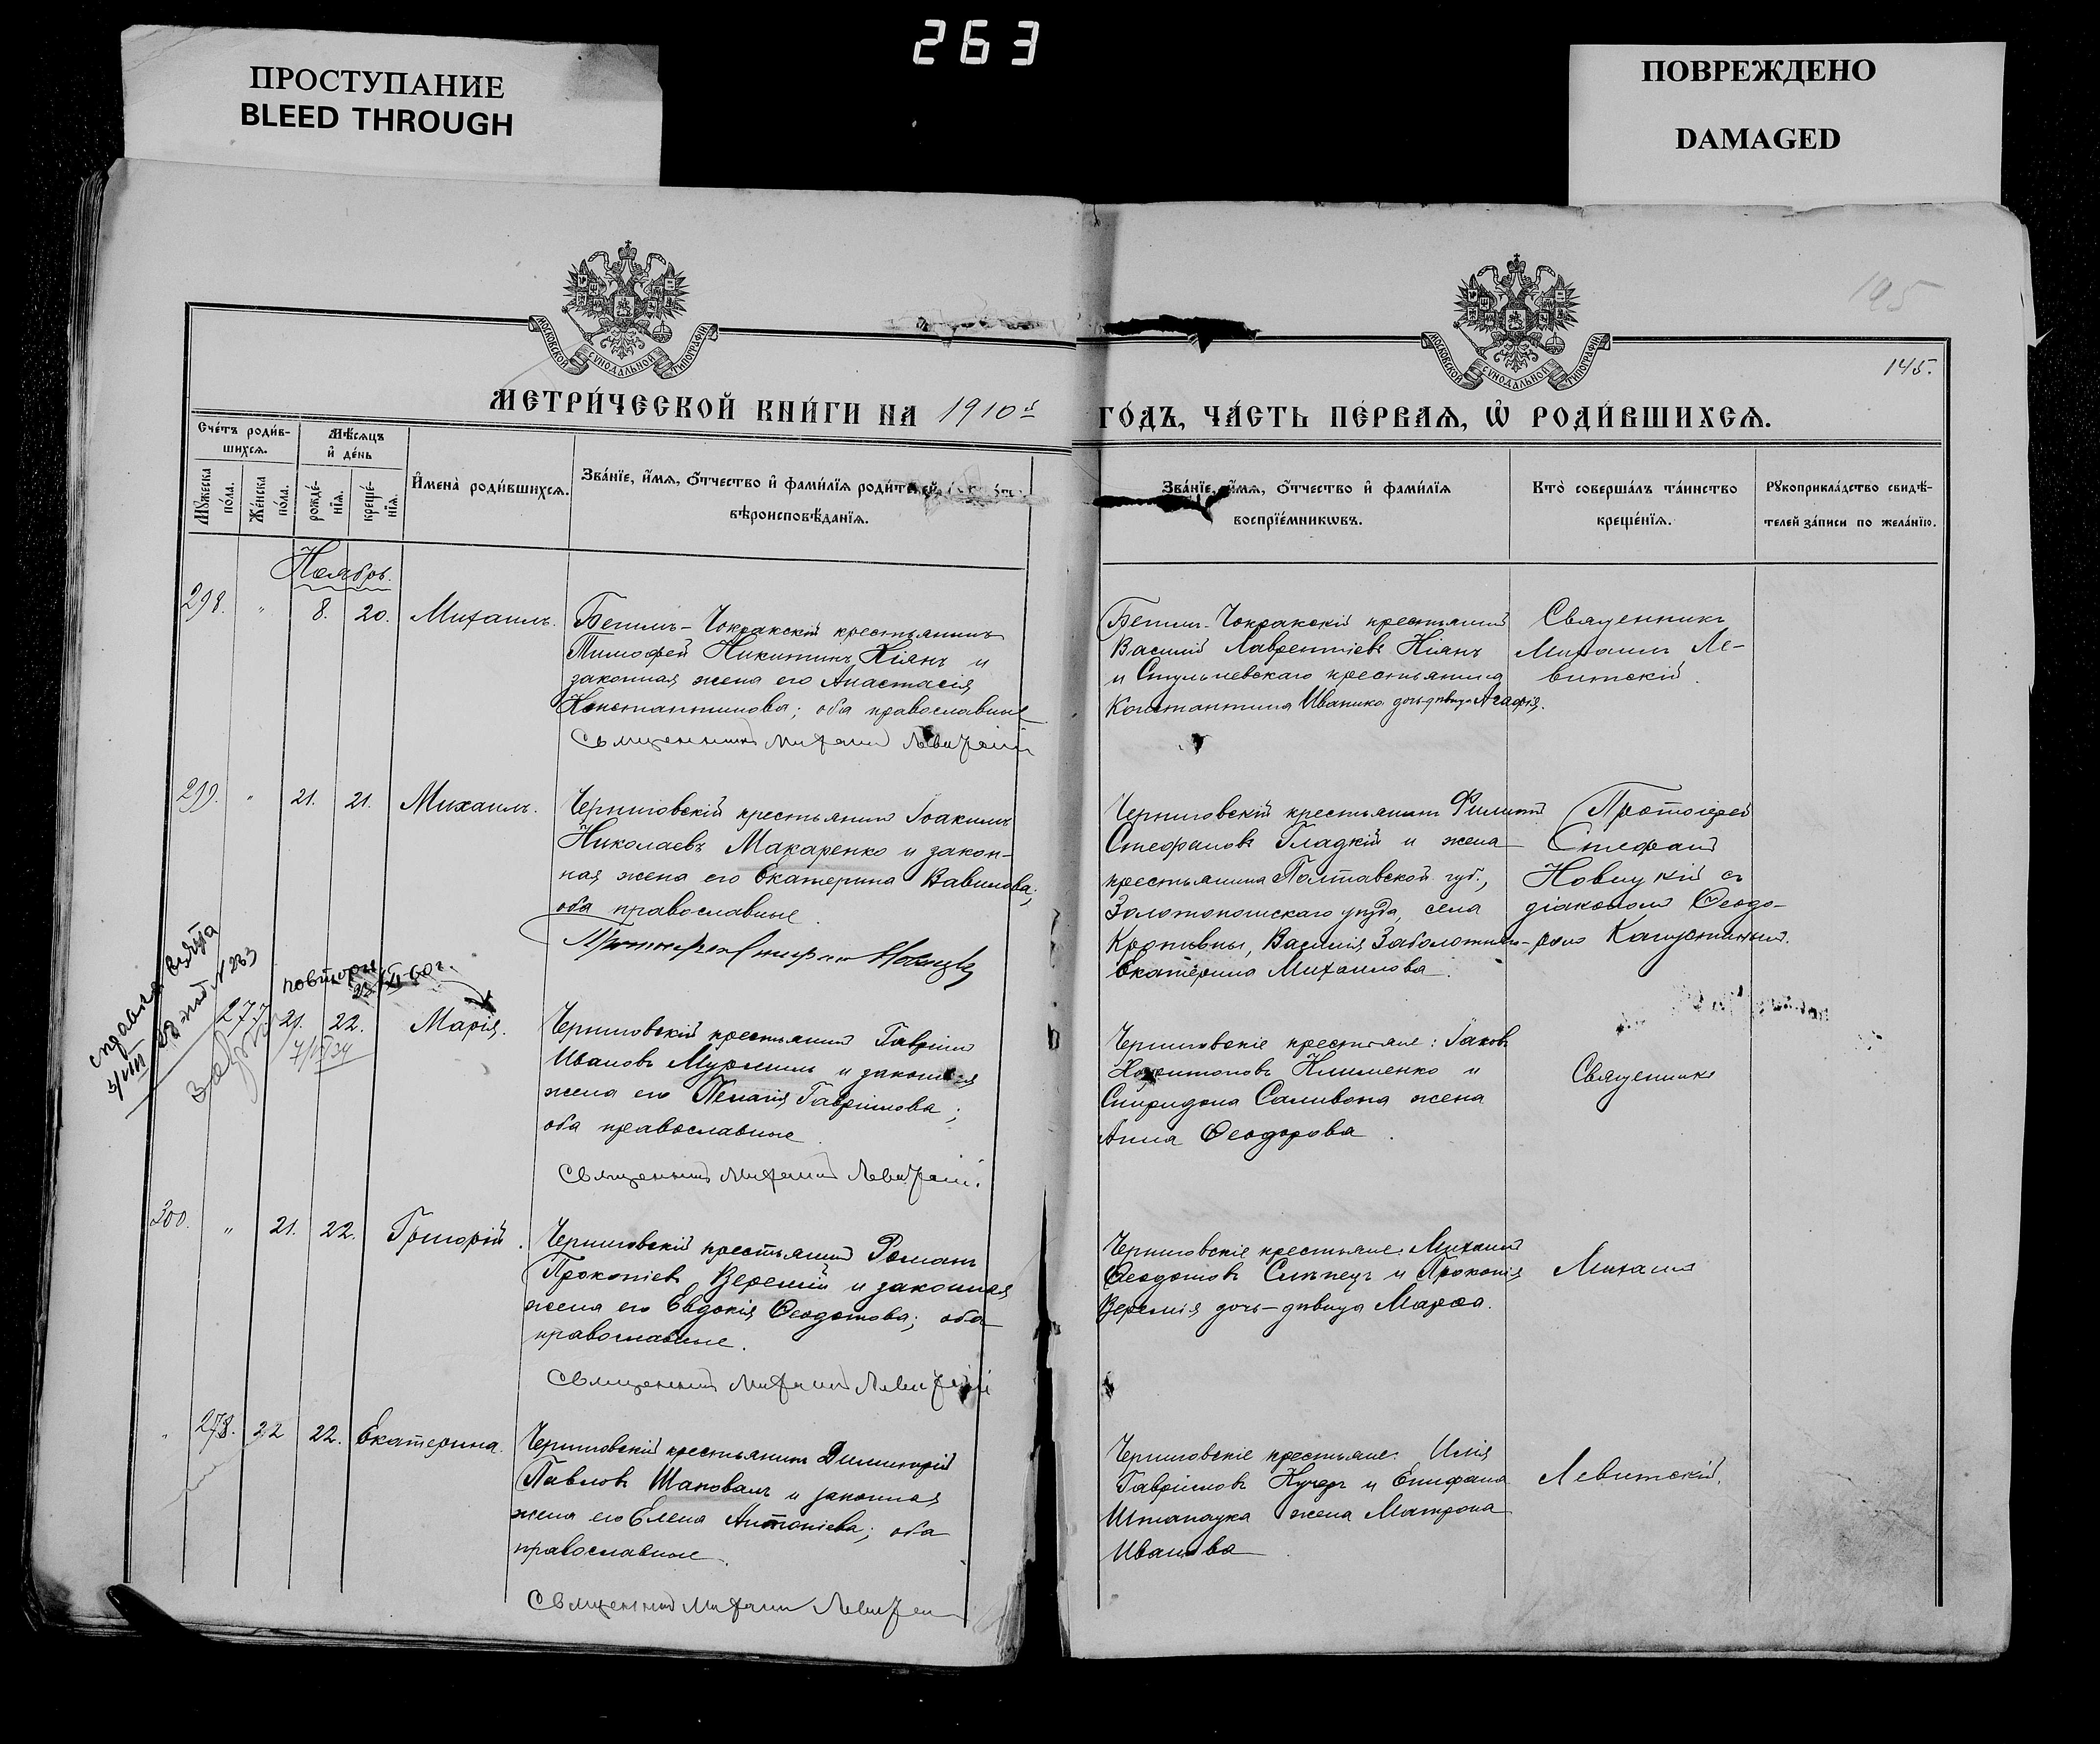 263
ПРОСТУПАНИЕ
BLEED THROUGH
ПОВРЕЖДЕНО
DAMAGED
МОСКОВСКОЙ СѴНОДАЛЬНОЙ ТИПОГРАФІИ
МОСКОВСКОЙ СѴНОДАЛЬНОЙ ТИПОГРАФІИ
145.
МЕТРИ́ЧЕСКОЙ КНИ́ГИ НА 1910й ГО́ДЪ, ЧА́СТЬ ПЕ́РВАѦ, Ѡ҆ РОДИ́ВШИХСѦ.
Сче́тъ роди́в-
шихсѧ.
Мꙋ́жеска по́ла.
Же́нска по́ла.
Мѣ́сяцъ
и҆ де́нь
рожде́-
нїѧ.
креще́-
нїѧ.
И҆мена̀ роди́вшихсѧ.
Зва́нїе, и҆́мѧ, ѻ҆́тчество и҆ фами́лїѧ роди́телей,
вѣроисповѣ́данїѧ.
Зва́нїе, и҆́мѧ, ѻ҆́тчество и҆ фами́лїѧ
воспрїе́мникѡвъ.
Кто̀ соверша́лъ та́инство
креще́нїѧ.
Рꙋкоприкла́дство свидѣ́-
телей за́писи по жела́нїю.
Ноябрь.
298. " 8. 20. Михаилъ.
Бегимъ-Чокракскій крестьянинъ
Тимофей Никитинъ Кіянъ и
законная жена его Анастасія
Константинова; оба православные
Священникъ Михаилъ Левитскій
Бегимъ-Чокракскій крестьянинъ
Василій Лаврентіевъ Кіянъ
и Стульневскаго крестьянина
Константина Иванико дочь девица Агафія.
Священникъ
Михаилъ Ле-
витскій.
299. " 21. 21. Михаилъ.
Черниговскій крестьянинъ Іоакимъ
Николаевъ Макаренко и закон-
ная жена его Екатерина Вавилова;
оба православные.
Протоіерей Стефанъ Новицкій
Черниговскій крестьянинъ Филиппъ
Стефановъ Гладкій и жена
крестьянина Полтавской губ.,
Золотоношскаго уѣзда, села
Кропивны, Василія
Екатерина Михаилова.
Протоіерей
Стефанъ
Новицкій съ
діакономъ Ѳеодо-
ромъ
справка
№ 233
повторн
277 21. 22. Марія.
7/III 34
Черниговскій крестьянинъ Гавріилъ
Ивановъ и законная
жена его Пелагія Гавріилова;
оба православные.
Священникъ Михаилъ Левитскій.
Черниговскіе крестьяне: Іаковъ
Харитоновъ Клименко и
Спиридона Саливона жена
Анна Ѳеодорова.
Священникъ
300. " 21. 22. Григорій.
Черниговскій крестьянинъ Романъ
Прокопіевъ Веремій и законная
жена его Евдокія Ѳеодотова; оба
православные.
Священникъ Михаилъ Левитскій
Черниговскіе крестьяне: Михаилъ
Ѳеодотовъ Слѣпецъ и Прокопія
Веремія дочь-дѣвица Марѳа.
Михаилъ
" 278. 22 22. Екатерина.
Черниговскій крестьянинъ Димитрій
Павловъ Шаповалъ и законная
жена его Елена Антоніева; оба
православные.
Священникъ Михаилъ Левитскій
Черниговскіе крестьяне: Илія
Гавріиловъ Кучеръ и Епифана
жена Матрона
Иванова.
Левитскій.